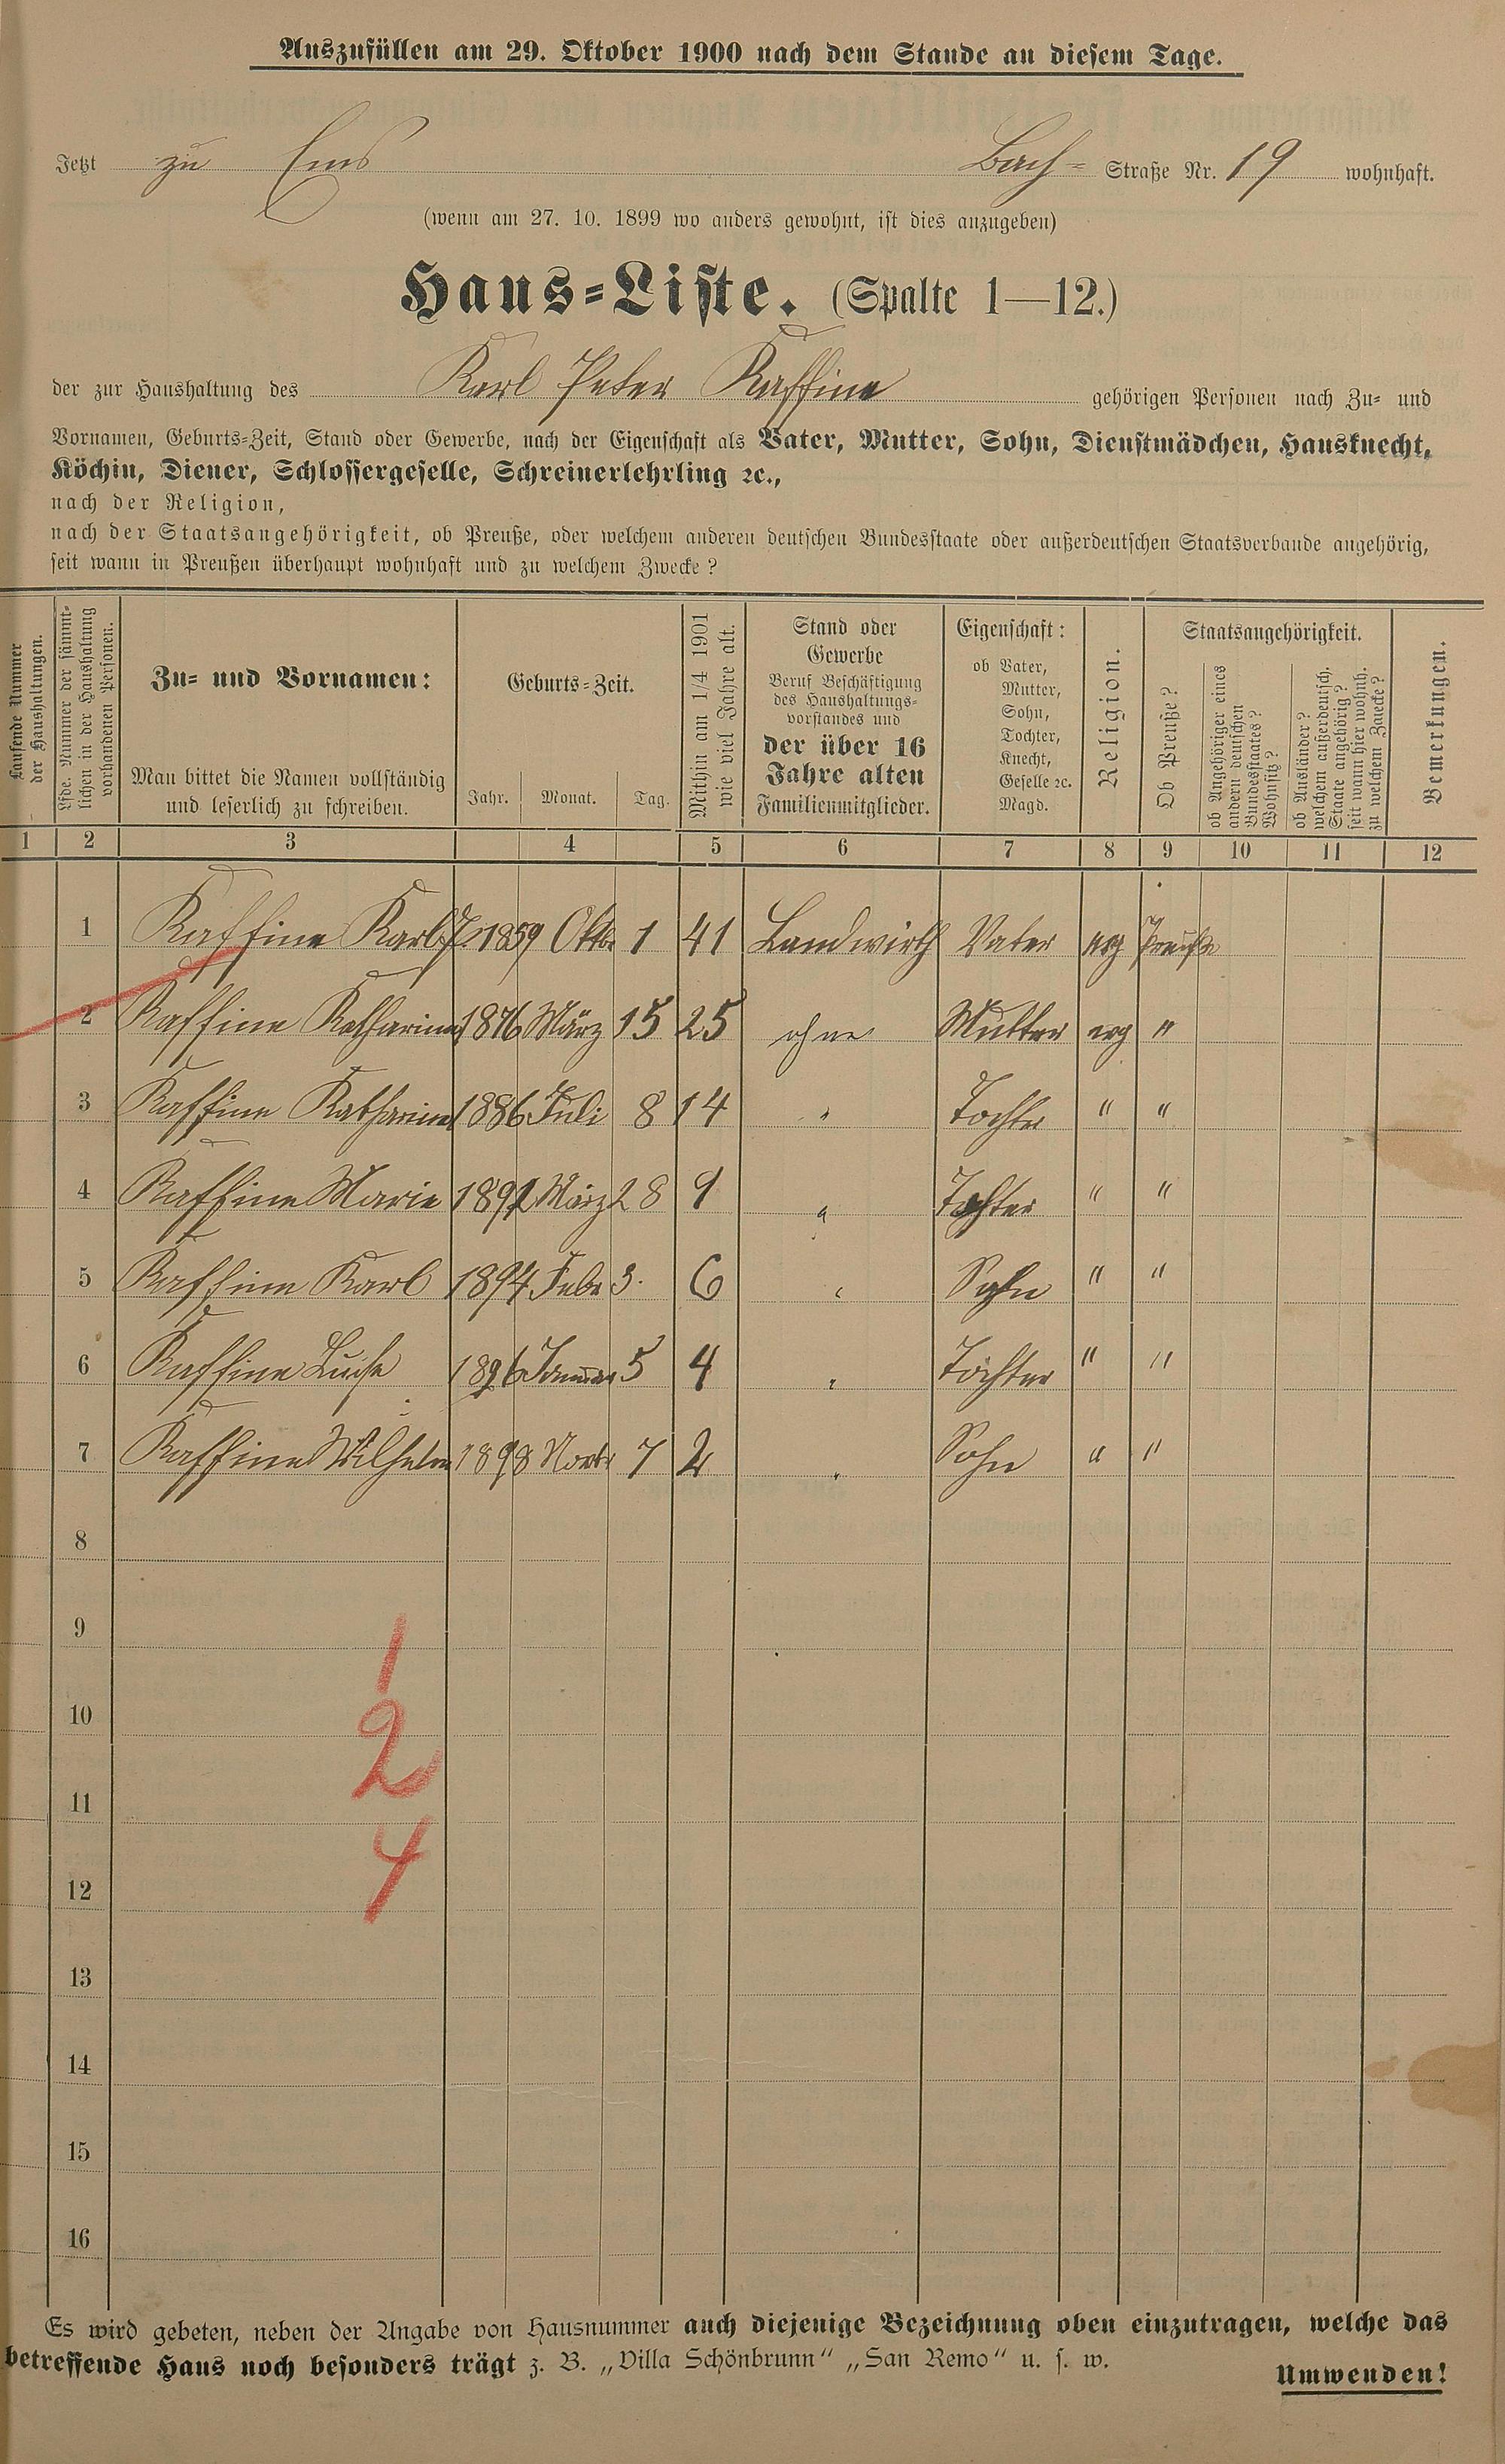 Auszufüllen am 29. Oktober 1900 nach dem Stande an diesem Tage.
Jetzt zu Ems Bach- Straße Nr. 19 wohnhaft.
(wenn am 27. 10. 1899 wo anders gewohnt, ist dies anzugeben)
Haus-Liste. (Spalte 1—12.)
der zur Haushaltung des Karl Peter Kaffine gehörigen Personen nach Zu- und
Vornamen, Geburts-Zeit, Stand oder Gewerbe, nach der Eigenschaft als Vater, Mutter, Sohn, Dienstmädchen, Hausknecht,
Köchin, Diener, Schlossergeselle, Schreinerlehrling ꝛc.,
nach der Religion,
nach der Staatsangehörigkeit, ob Preuße, oder welchem anderen deutschen Bundesstaate oder außerdeutschen Staatsverbande angehörig,
seit wann in Preußen überhaupt wohnhaft und zu welchem Zwecke?
Laufende Nummer
der Haushaltungen.
Lfde. Nummer der sämmt-
lichen in der Haushaltung
vorhandenen Personen.
Zu- und Vornamen:
Man bittet die Namen vollständig
und leserlich zu schreiben.
Geburts-Zeit.
Jahr. Monat. Tag.
Mithin am 1/4 1901
wie viel Jahre alt.
Stand oder
Gewerbe
Beruf Beschäftigung
des Haushaltungs-
vorstandes und
der über 16
Jahre alten
Familienmitglieder.
Eigenschaft:
ob Vater,
Mutter,
Sohn,
Tochter,
Knecht,
Geselle ꝛc.
Magd.
Religion.
Staatsangehörigkeit.
Ob Preuße?
ob Angehöriger eines
andern deutschen
Bundesstaates?
Wohnsitz?
ob Ausländer?
welchem außerdeutsch.
Staate angehörig?
seit wann hier wohnh.
zu welchem Zwecke?
Bemerkungen.
1 2 3 4 5 6 7 8 9 10 11 12
1 Kaffine Karl 1859 Oktb. 1 41 Landwirth Vater evg Preuße
2 Kaffine Katharina 1876 März 15 25 ohne Mutter evg "
3 Kaffine Katharina 1886 Juli 8 14 " Tochter " "
4 Kaffine Marie 1891 März 28 9 " Tochter " "
5 Kaffine Karl 1894 Febr 3. 6 " Sohn " "
6 Kaffine Luise 1896 Januar 5 4 " Tochter " "
7 Kaffine Wilhelm 1898 Novbr 7 2 " Sohn " "
8
9
1
10
2
11
4
12
13
14
15
16
Es wird gebeten, neben der Angabe von Hausnummer auch diejenige Bezeichnung oben einzutragen, welche das
betreffende Haus noch besonders trägt z. B. „Villa Schönbrunn“ „San Remo“ u. s. w.
Umwenden!